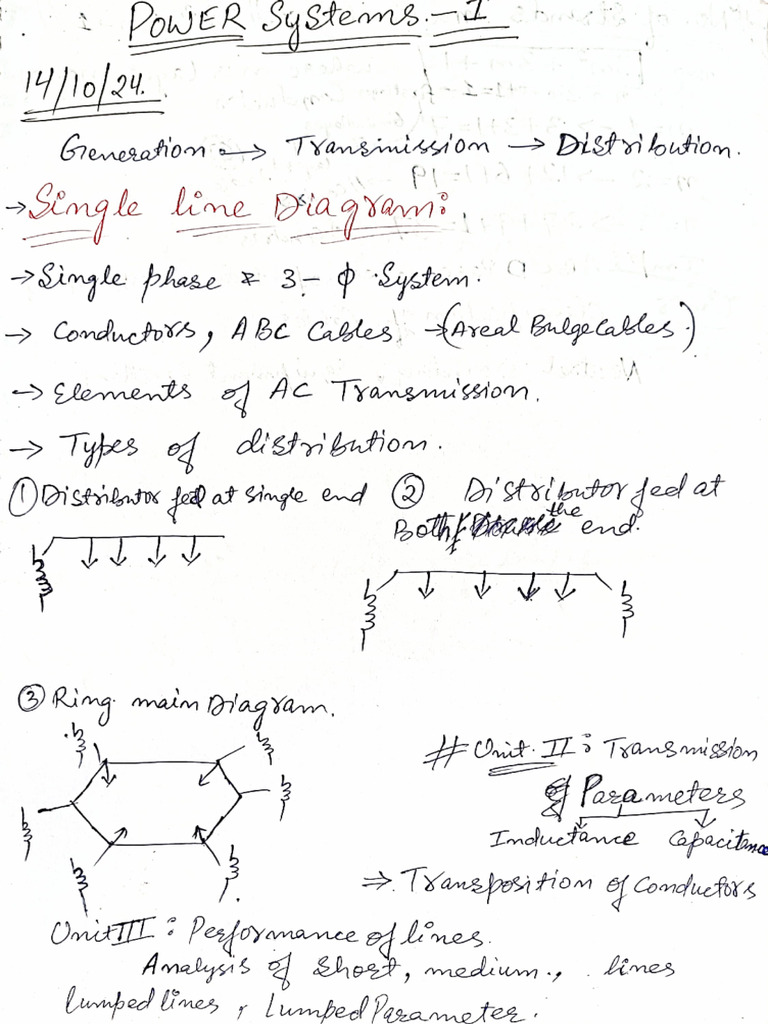 POWER Systems.-I
14/10/24.
Generation → Transmission → Distribution.
→ Single line Diagram:
→ Single phase & 3-φ System.
→ Conductors, ABC Cables → (Areal Bulge Cables.)
→ Elements of AC Transmission.
→ Types of distribution.
① Distributor fed at single end
② Distributor fed at
Both the end.
③ Ring main Diagram.
# Unit. II: Transmission
Parameters
Inductance Capacitance
⇒ Transposition of Conductors
Unit III: Performance of lines.
Analysis of short, medium., lines
lumped lines, Lumped Parameter.